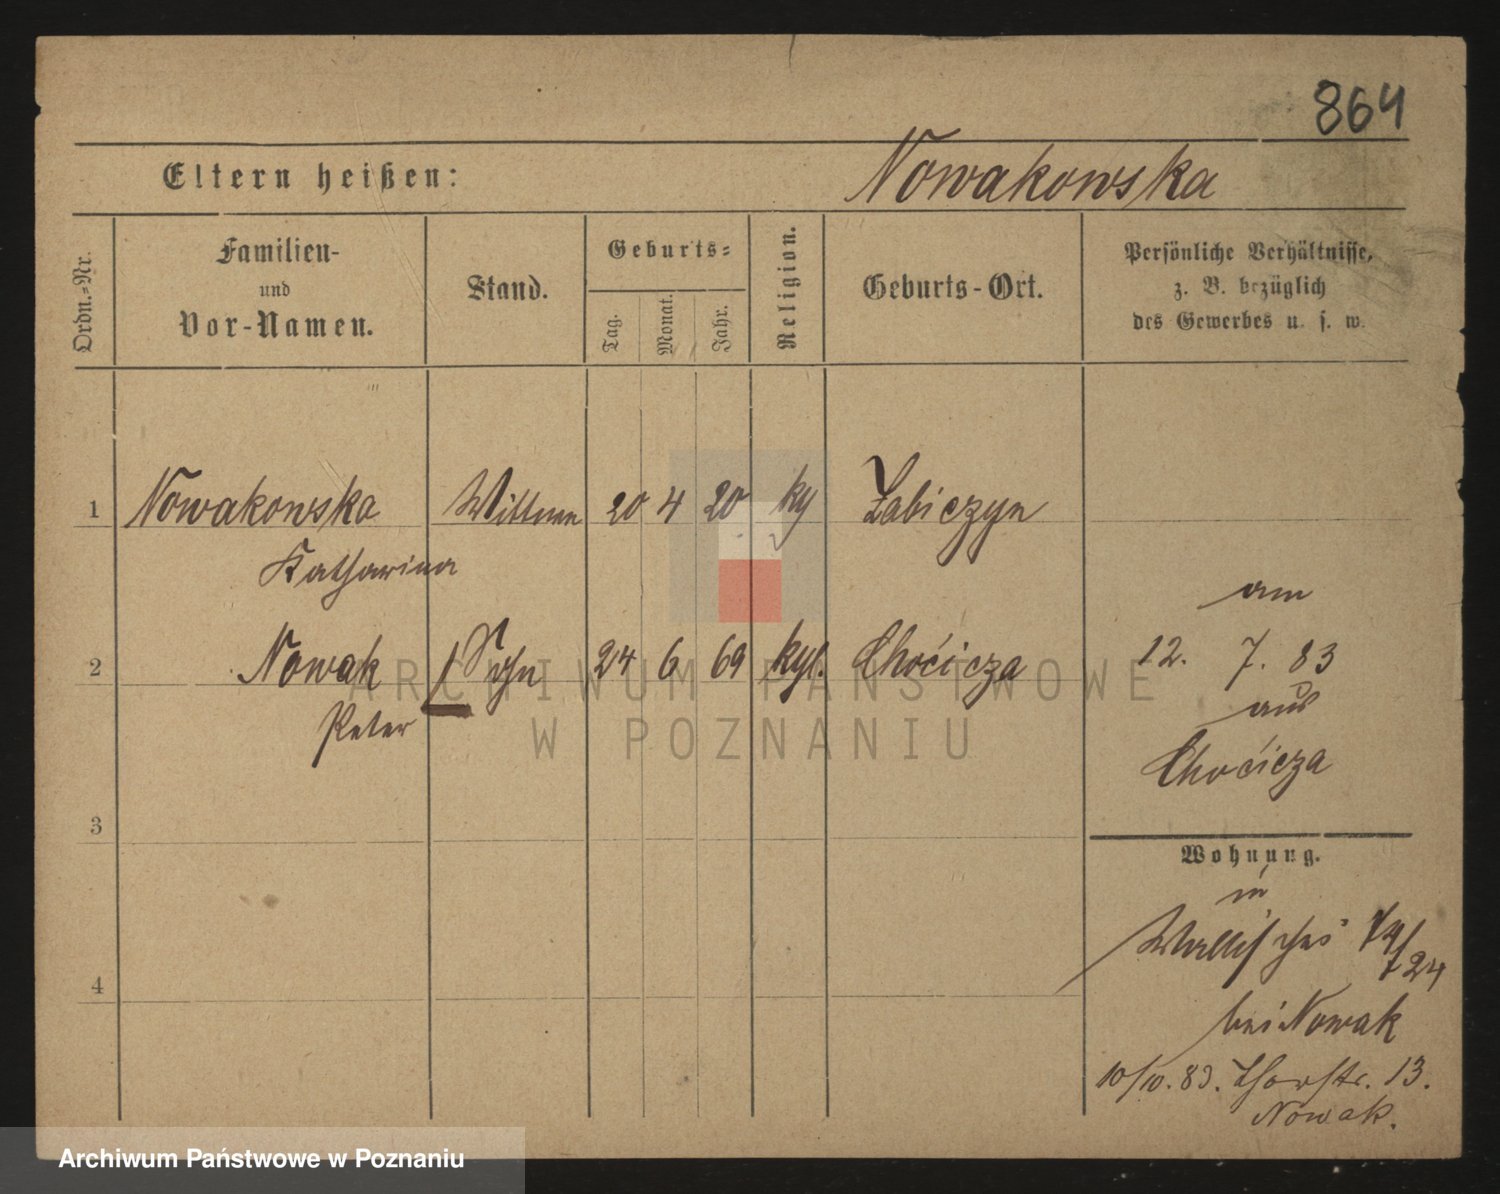 864
Eltern heißen: Nowakowska
Ordn.-Nr.
Familien-
und
Vor-Namen.
Stand.
Geburts-
Tag.
Monat.
Jahr.
Religion.
Geburts-Ort.
Persönliche Verhältnisse,
z. B. bezüglich
des Gewerbes u. s. w.
1 Nowakowska Wittwe 20 4 20 Żabiczyn
Katharina
am
2 Nowak Sohn 24 6 69 Choćicza 12. 7. 83
Peter
aus
Choćicza
3
Wohnung.
in
Wallischei 74/
724
4
bei Nowak
10/10. 83. Thorstr. 13.
Nowak.
ARCHIWUM PAŃSTWOWE
W POZNANIU
Archiwum Państwowe w Poznaniu